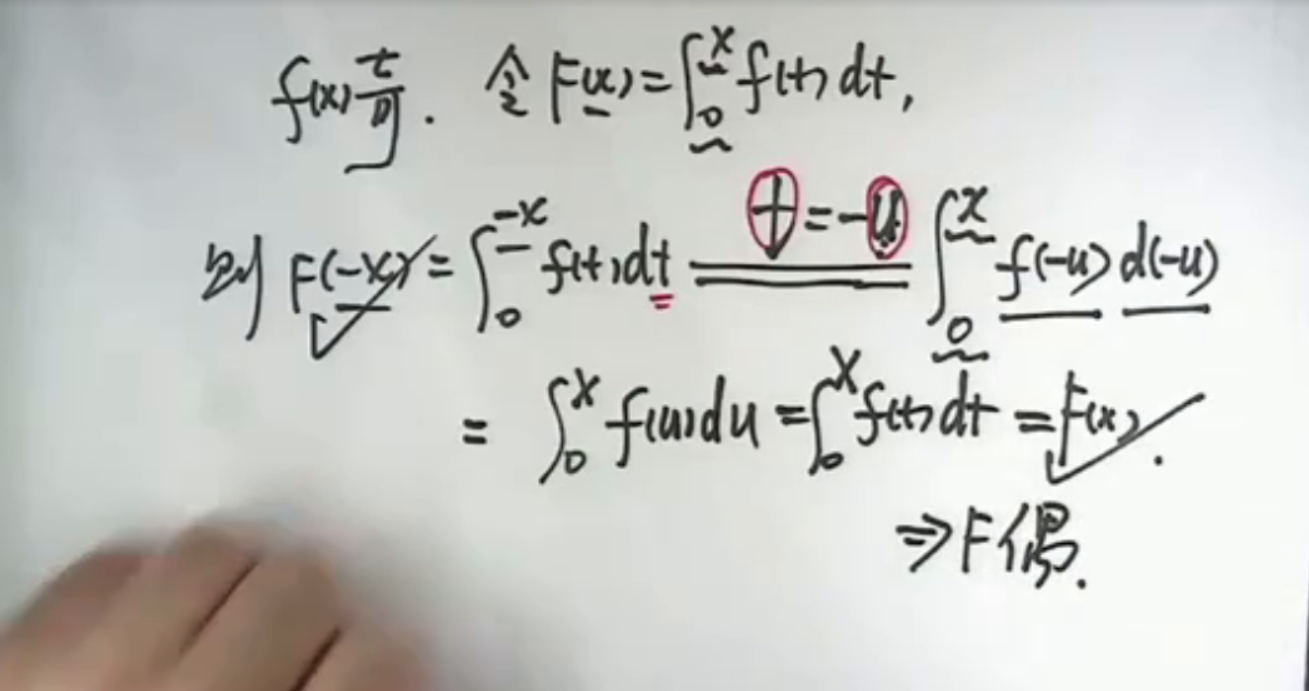 f(x)奇. 令F(x)=∫₀ˣf(t)dt,
则 F(-x)=∫₀⁻ˣf(t)dt t=-u ∫₀ˣ f(-u) d(-u)
= ∫₀ˣ f(u)du =∫₀ˣf(t)dt =F(x).
⇒F偶.